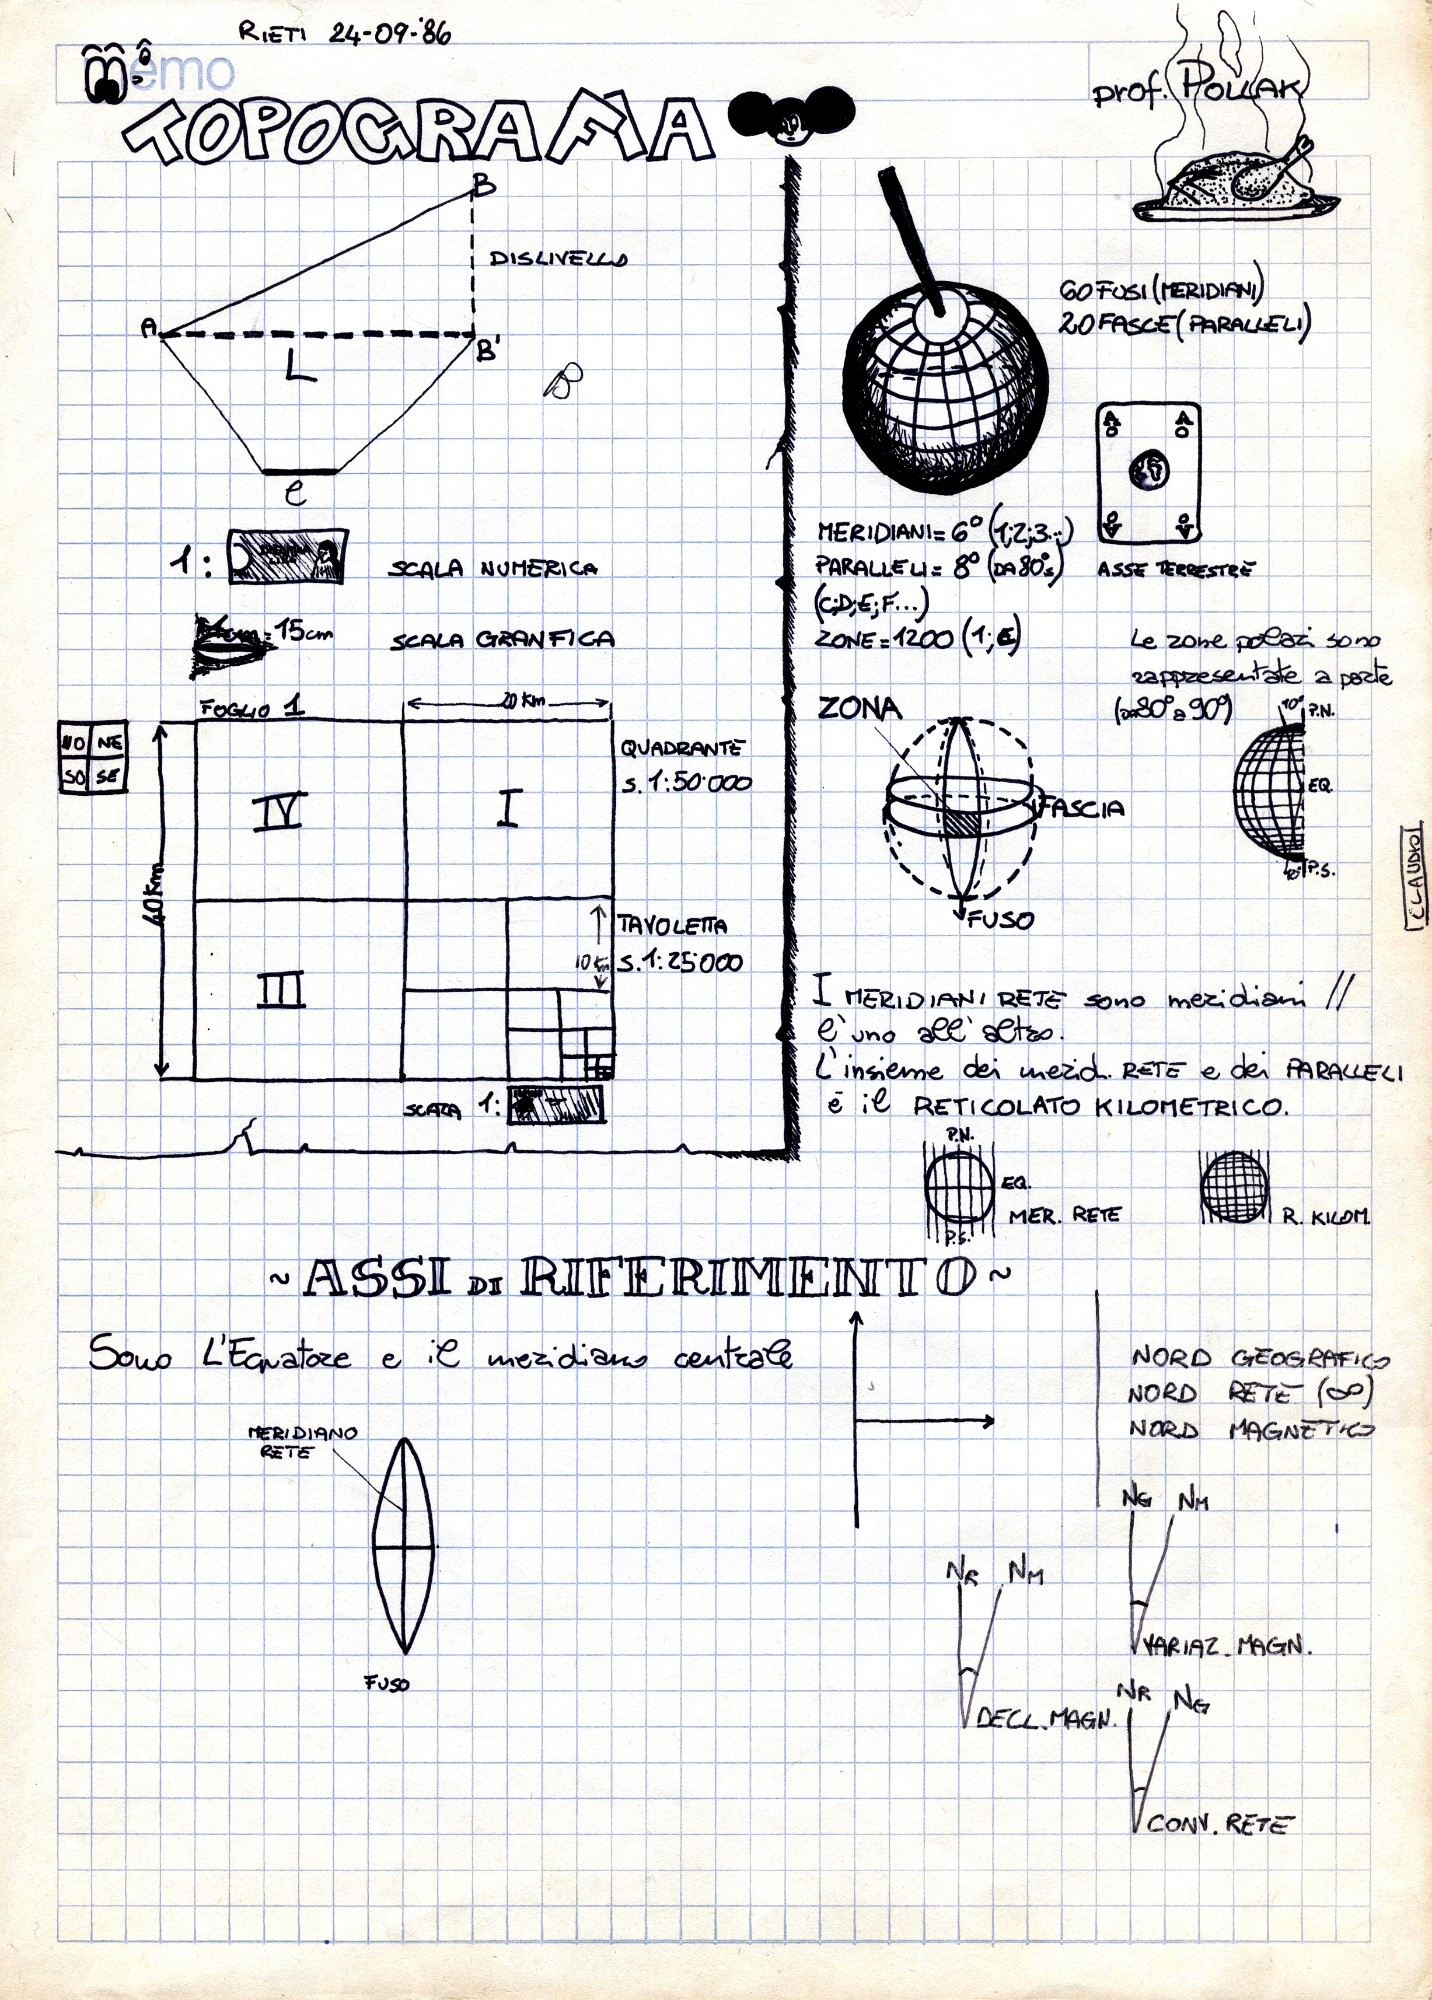 RIETI 24-09-'86
memo
prof. POLLAK
TOPOGRAFIA
B
DISLIVELLO
A
B'
L
B
l
1:
SCALA NUMERICA
= 15 cm
SCALA GRANFICA
FOGLIO 1
20 Km
NO NE
SO SE
40 Km
IV
I
III
QUADRANTE
s. 1:50'000
TAVOLETTA
s. 1:25'000
10 Km
SCALA 1:
60 FUSI (MERIDIANI)
20 FASCE (PARALLELI)
A A
O O
O O
A A
ASSE TERRESTRE
MERIDIANI = 6° (1;2;3...)
PARALLELI = 8° (DA 80°s)
(C;D;E;F...)
ZONE = 1200 (1;C)
Le zone polari sono
rappresentate a parte
(da 80° a 90°)
10° P.N.
EQ.
10° P.S.
ZONA
FASCIA
FUSO
CLAUDIO
I MERIDIANI RETE sono meridiani //
l'uno all'altro.
L'insieme dei merid. RETE e dei PARALLELI
è il RETICOLATO KILOMETRICO.
P.N.
EQ.
P.S.
MER. RETE
R. KILOM.
~ ASSI DI RIFERIMENTO ~
Sono L'Equatore e il meridiano centrale
MERIDIANO
RETE
FUSO
NORD GEOGRAFICO
NORD RETE (∞)
NORD MAGNETICO
NG NM
VARIAZ. MAGN.
NR NM
DECL. MAGN.
NR NG
CONV. RETE